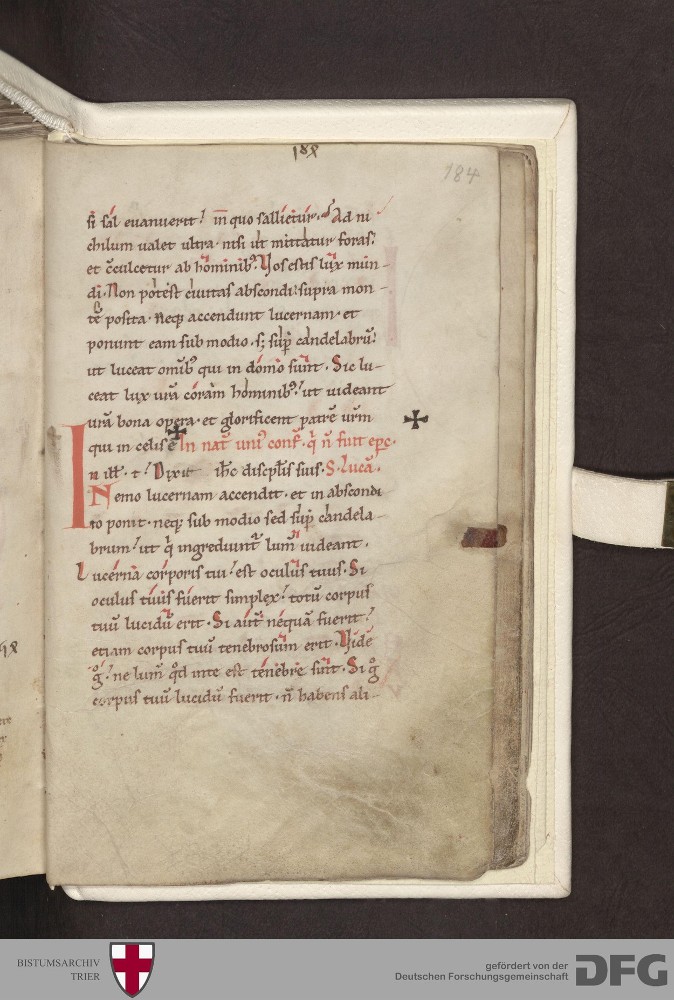 184
si sal euanuerit? in quo sallietur. Ad ni
chilum ualet ultra. nisi ut mittatur foras?
et cculcetur ab hominib;. Vos estis lux mun-
di. Non potest ciuitas abscondi. supra mon-
tē posita. Neq; accendunt lucernam. et
ponunt eam sub modio. s; sup candelabrū.
ut luceat omib; qui in domo sunt. Sic lu-
ceat lux urā coram hominib;. ut uideant
urā bona opera. et glorificent patrē urm
qui in celis ē. In nat uni conf. q n fuit epc.
In ill. t. Dixit ihc discplis suis. S. Lucā.
Nemo lucernam accendit. et in abscondi
to ponit. neq; sub modio sed sup candela-
brum. ut q ingrediunt lum uideant.
Lucerna corporis tui. est oculus tuus. Si
oculus tuus fuerit simplex. totū corpus
tuū lucidū erit. Si aut nequā fuerit.
etiam corpus tuū tenebrosum erit. Vide
g. ne lum qd inte est tenebre sunt. Si g
corpus tuū lucidū fuerit. n habens ali-
BISTUMSARCHIV
TRIER
gefördert von der
Deutschen Forschungsgemeinschaft
DFG